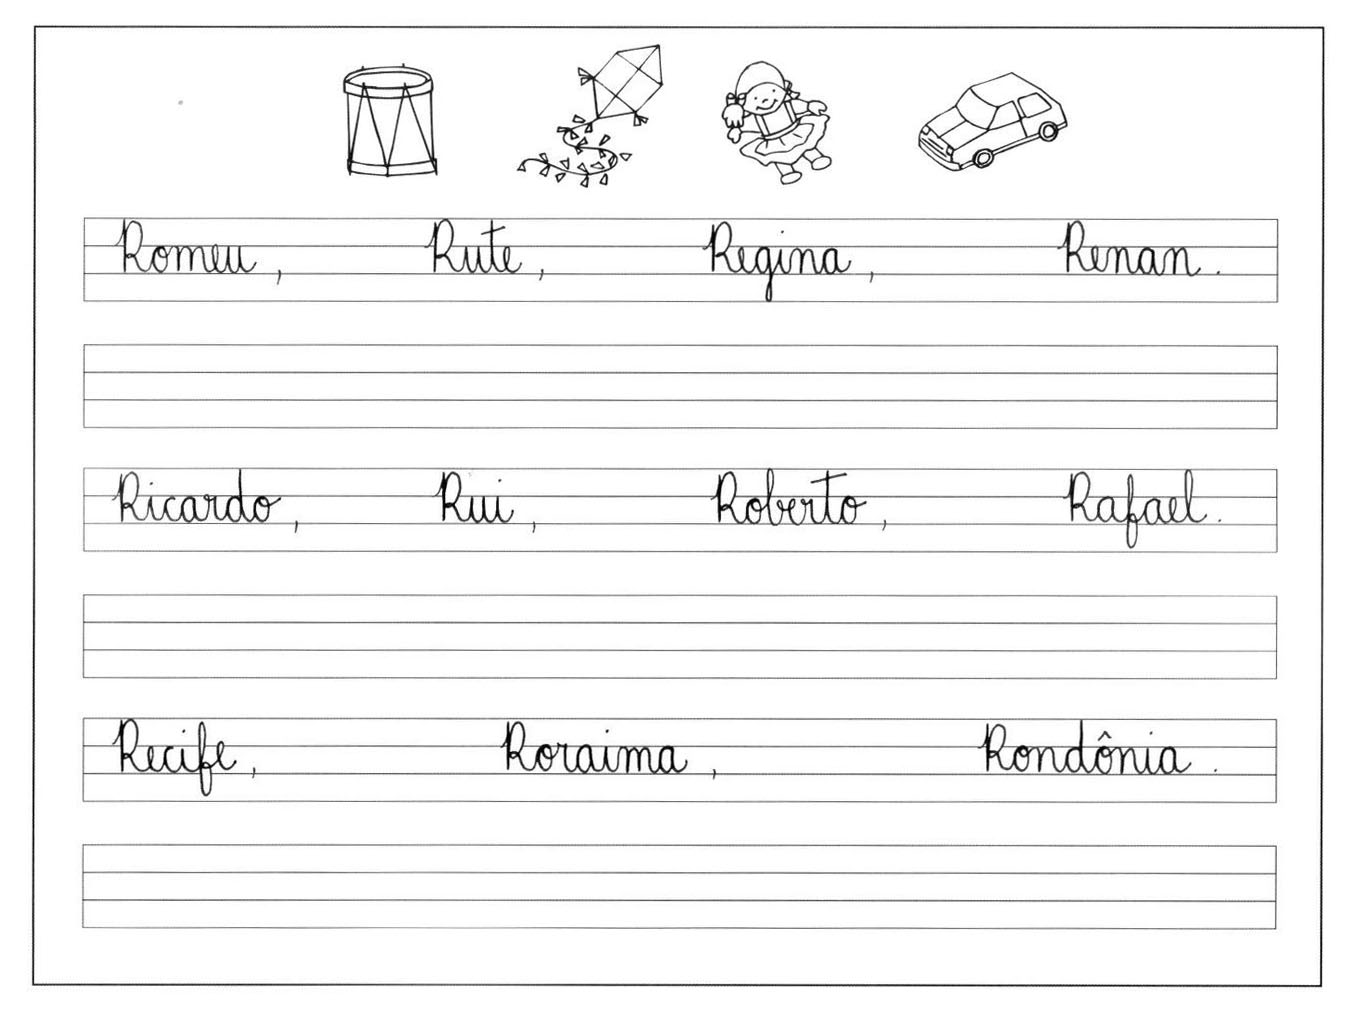 Romeu, Rute, Regina, Renan.
Ricardo, Rui, Roberto, Rafael.
Recife, Roraima, Rondônia.